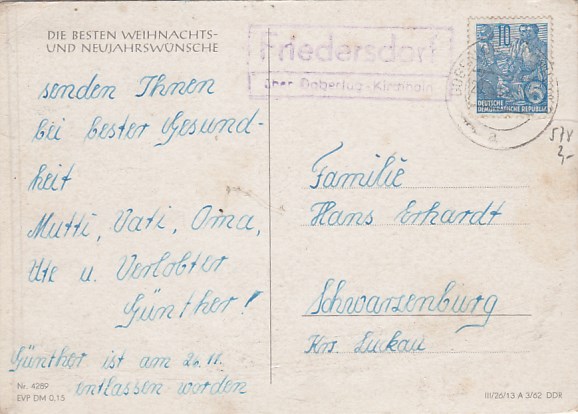 DIE BESTEN WEIHNACHTS-
UND NEUJAHRSWÜNSCHE
senden Ihnen
bei bester Gesund-
heit
Mutti, Vati, Oma,
Ute u. Verlobter
Günther!
Günther ist am 26.11.
entlassen worden
Nr. 4289
EVP DM 0,15
Friedersdorf
über Doberlug-Kirchhain
10
DEUTSCHE
DEMOKRATISCHE REPUBLIK
a
Familie
Hans Erhardt
Schwarzenburg
Krs. Luckau
III/26/13 A 3/62 DDR